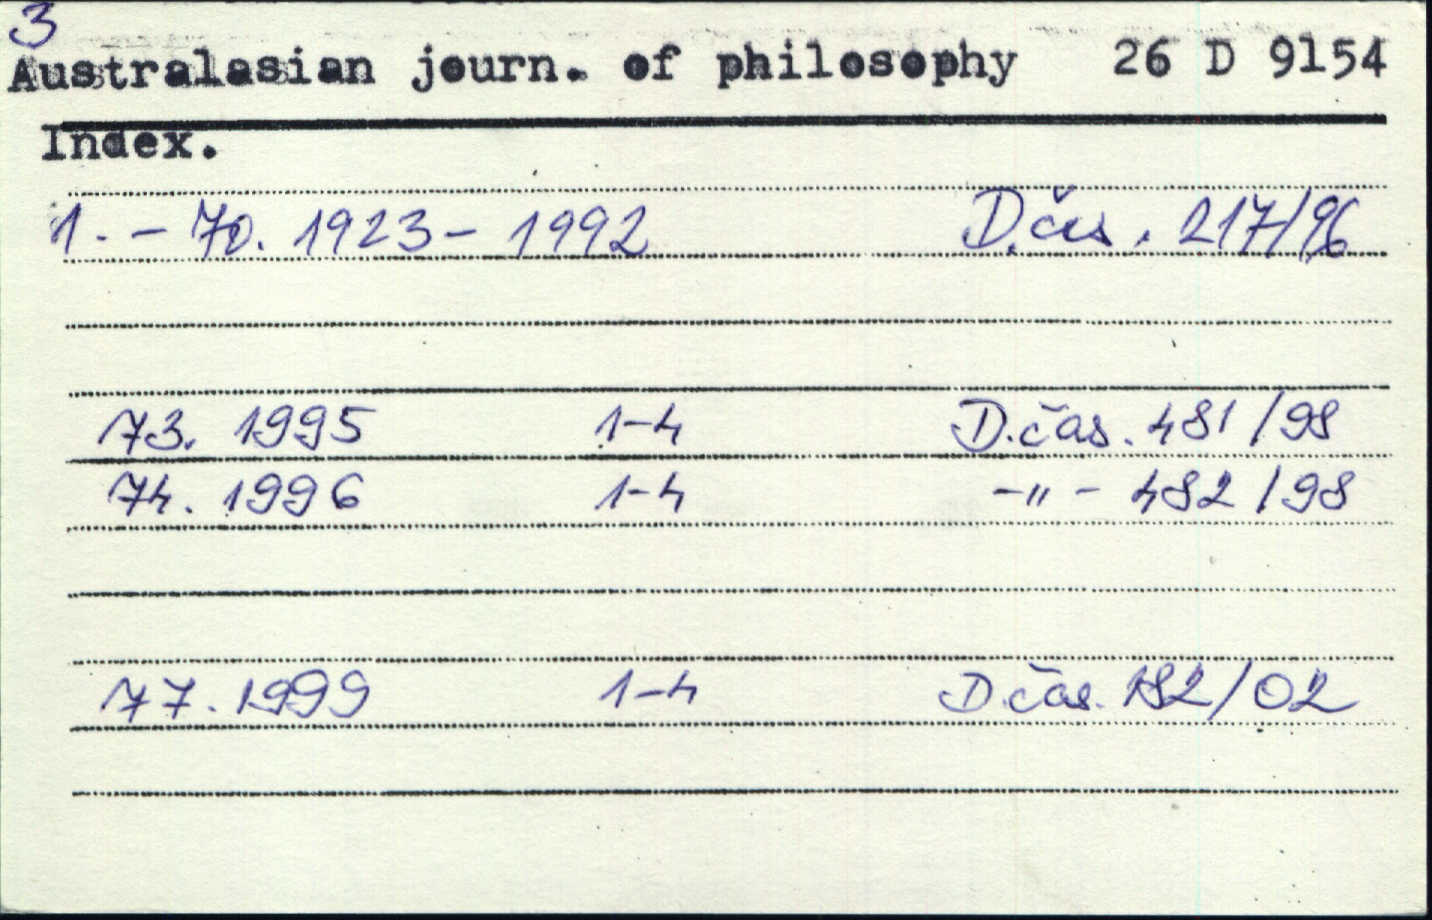 3
Australasian journ. of philosophy 26 D 9154
Index.
1. - 70. 1923 - 1992 D.čas. 217/96
73. 1995 1-4 D.čas. 481/98
74. 1996 1-4 -"- 482/98
77. 1999 1-4 D.čas. 182/02